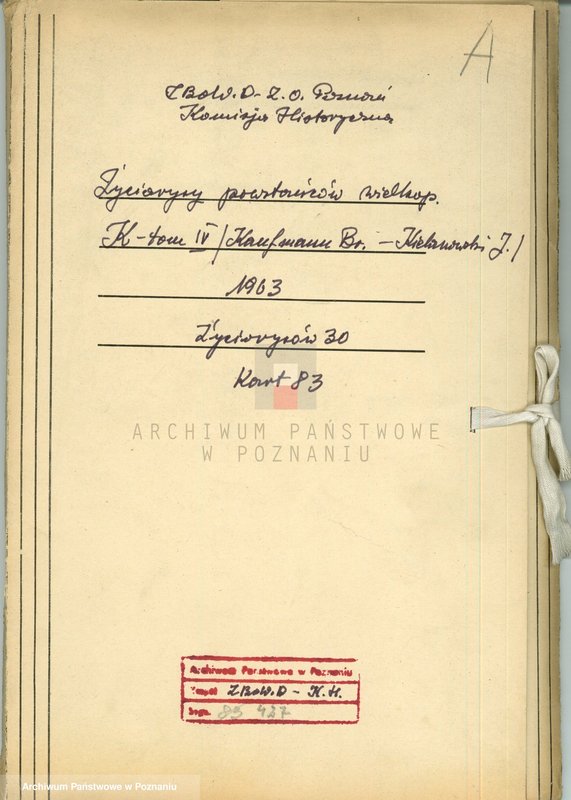 A
ZBoW.D - Z.O. Poznań
Komisja Historyczna
Życiorysy powstańców wielkop.
K - tom IV / Kaufmann Br. - Kielanowski J. /
1963
Życiorysów 30
Kart 83
ARCHIWUM PAŃSTWOWE
W POZNANIU
Archiwum Państwowe w Poznaniu
Zespół ZBoW.D - K.H.
Sygn. 83 427
Archiwum Państwowe w Poznaniu